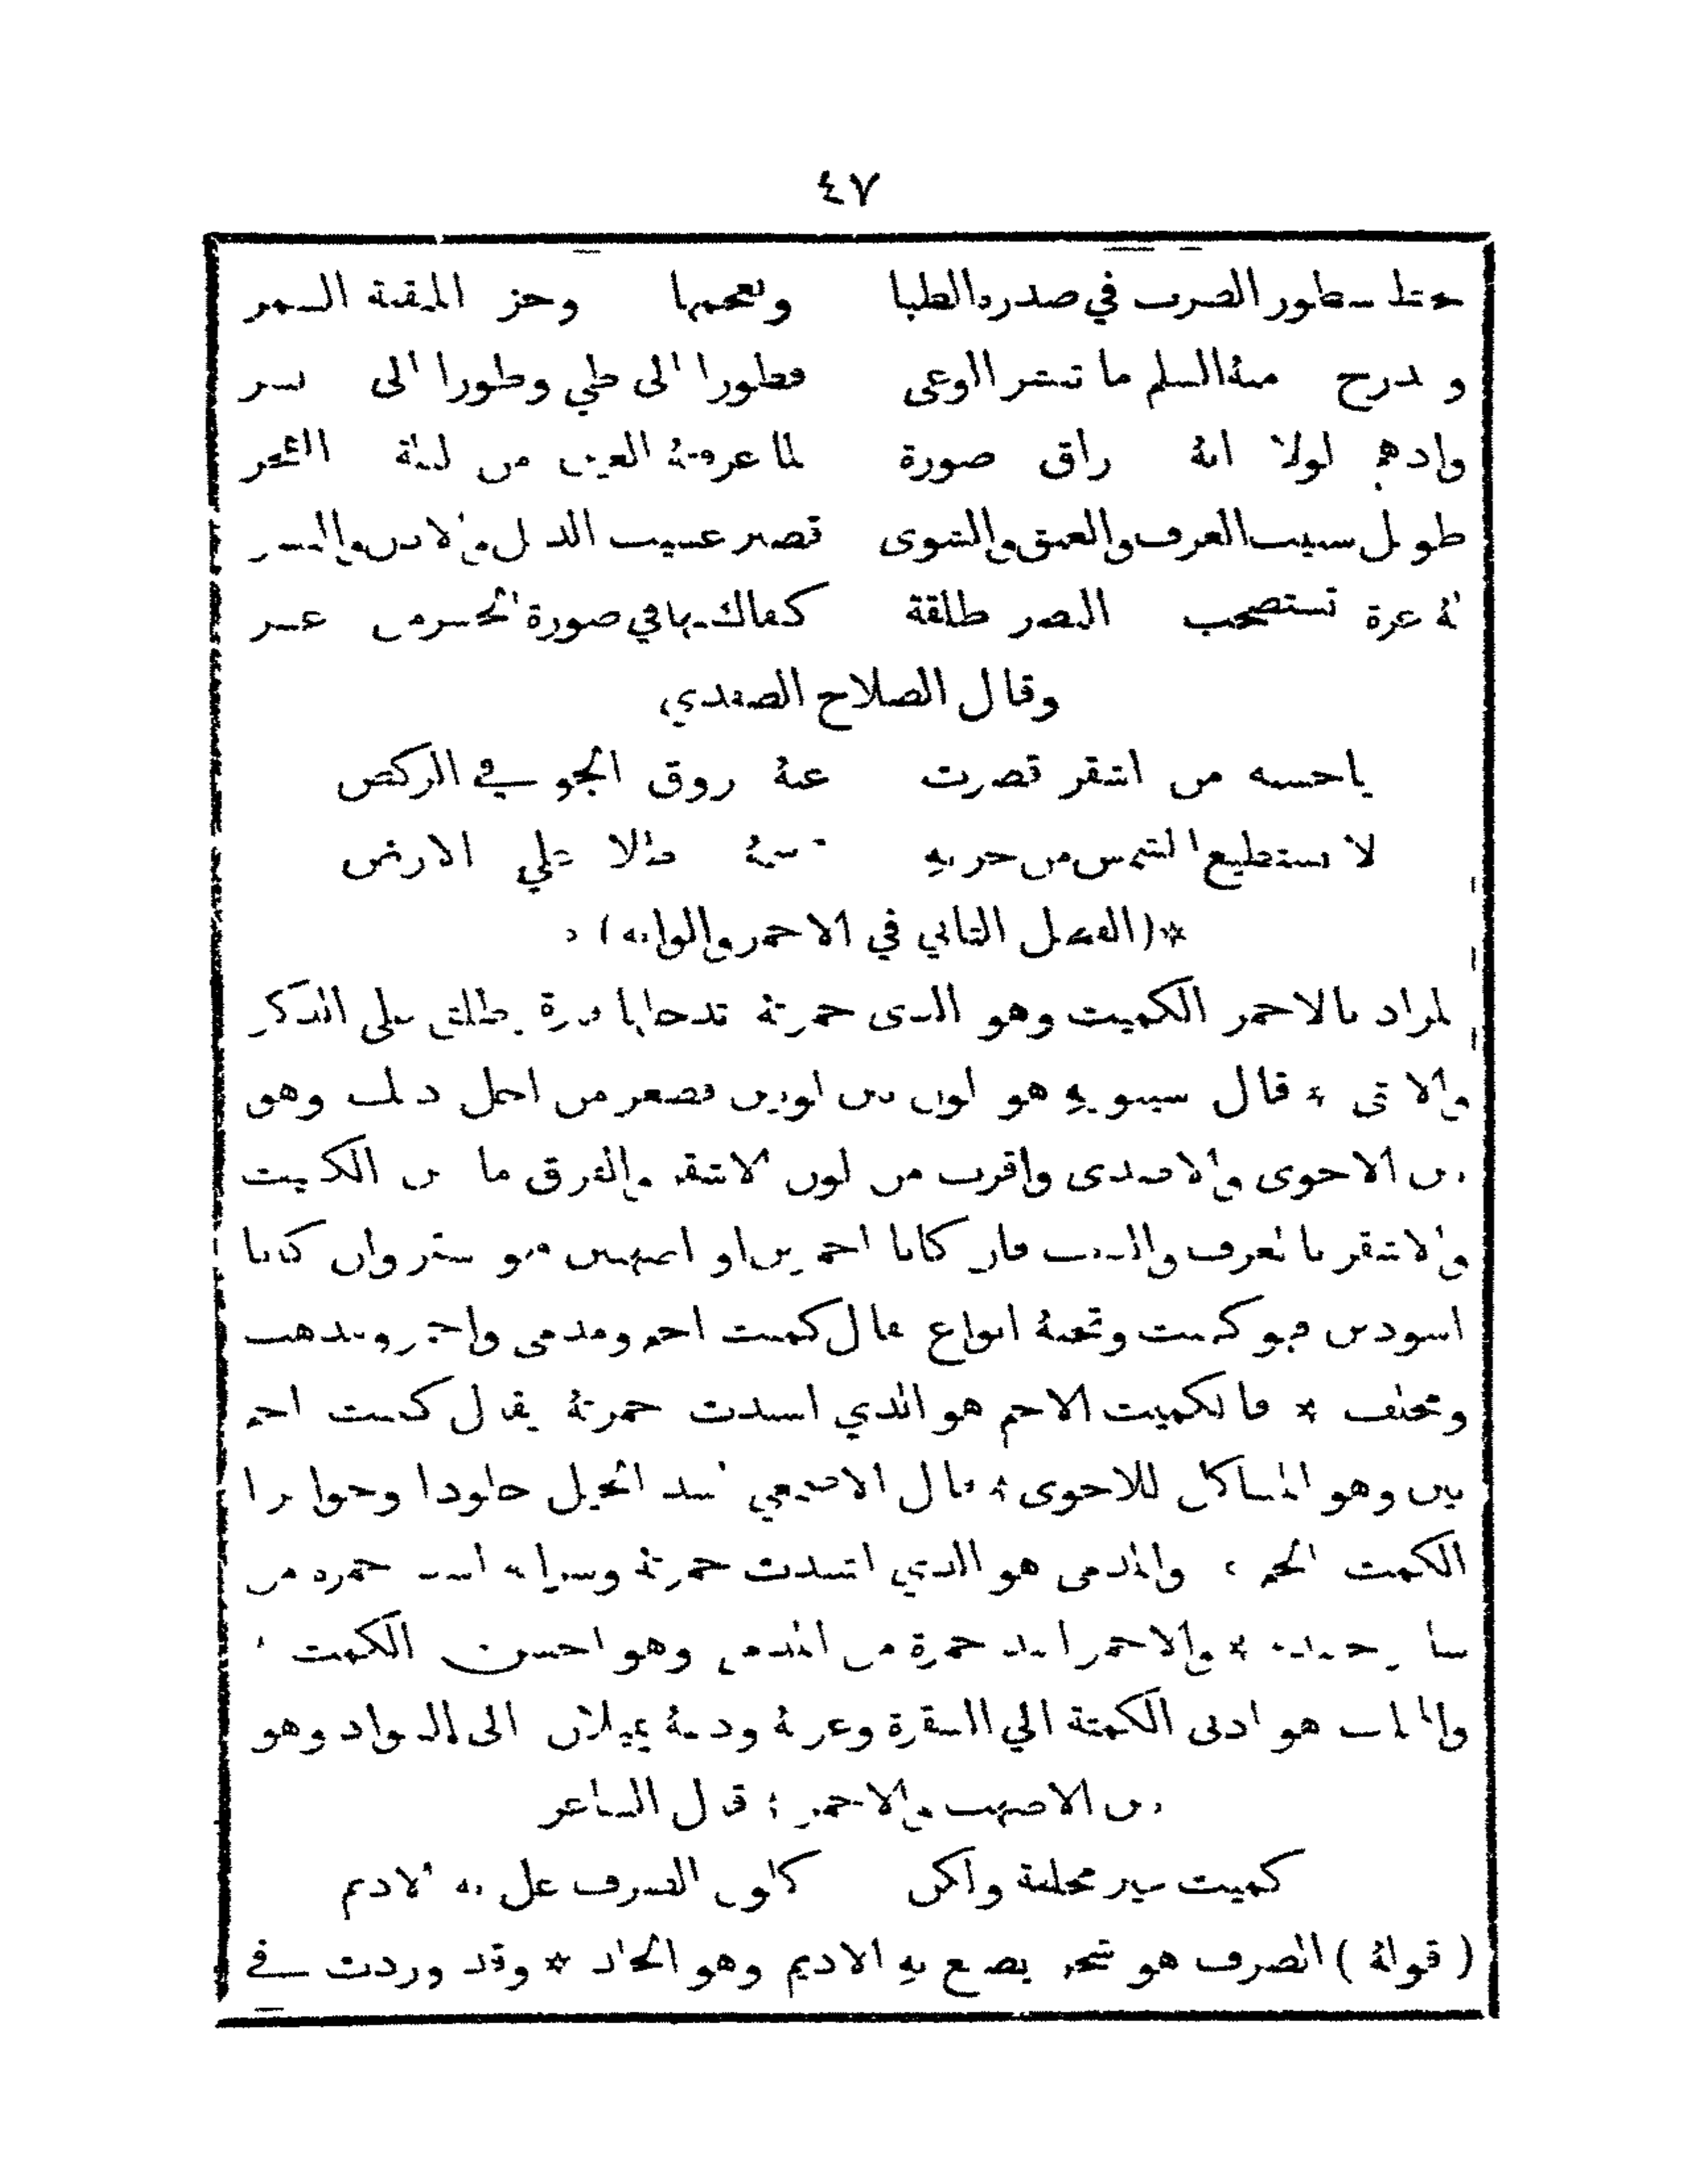 ٤٧
تخط سطور الضرب في صدره الظبا ويعجمها وخز المثقفة السمر
ويدرج منهُ السلم ما تنشر الوغى فطورا الى طي وطورا الى نشر
وادهم لولا انهُ راق صورة لما عرفتهُ العين من ليلة
طويل سبيب العرف والعنق والشوى قصير عسيب الذيل والاذن
لهُ غرة تستصحب النصر طلقة كفاك بها في صورة
وقال الصلاح الصفدي
يا حسنه من اشقر قصرت عنهُ بروق الجو في الركض
لا تستطيع الشمس من جريهِ ترسمهُ ظلا على الارض
*(الفصل الثاني في الاحمر والوانه)*
المراد بالاحمر الكميت وهو الذي حمرتهُ يطلق على الذكر
والانثى * قال سيبويهِ هو لون بين لونين فصغر من اجل ذلك وهو
بين الاحوى والاصدى واقرب من لون الاشقر والفرق ما بين الكميت
والاشقر بالعرف والذنب فان كانا احمرين او اصهبين فهو اشقر وان كانا
اسودين فهو كميت وتحتهُ انواع يقال كميت احم ومدمى واحمر ومذهب
ومحلف * فالكميت الاحم هو الذي اشتدت حمرتهُ يقال كميت احم
بين وهو المشاكل للاحوى * قال الاصمعي اشد الخيل جلودا وحوافرا
الكمت الحم * والمدمى هو الذي اشتدت حمرتهُ وسراته اشد حمرة من
سائر جسده * والاحمر اشد حمرة من المدمى وهو احسن الكمت *
والمذهب هو ادنى الكمتة الي الشقرة وعرفهُ وذنبهُ يميلان الى السواد وهو
بين الاصهب والاحمر * قال الشاعر
كميت غير محلفة ولكن كلون الصرف عل به الاديم
( قولهُ ) الصرف هو شجر يصبغ بهِ الاديم وهو * وقد وردت في